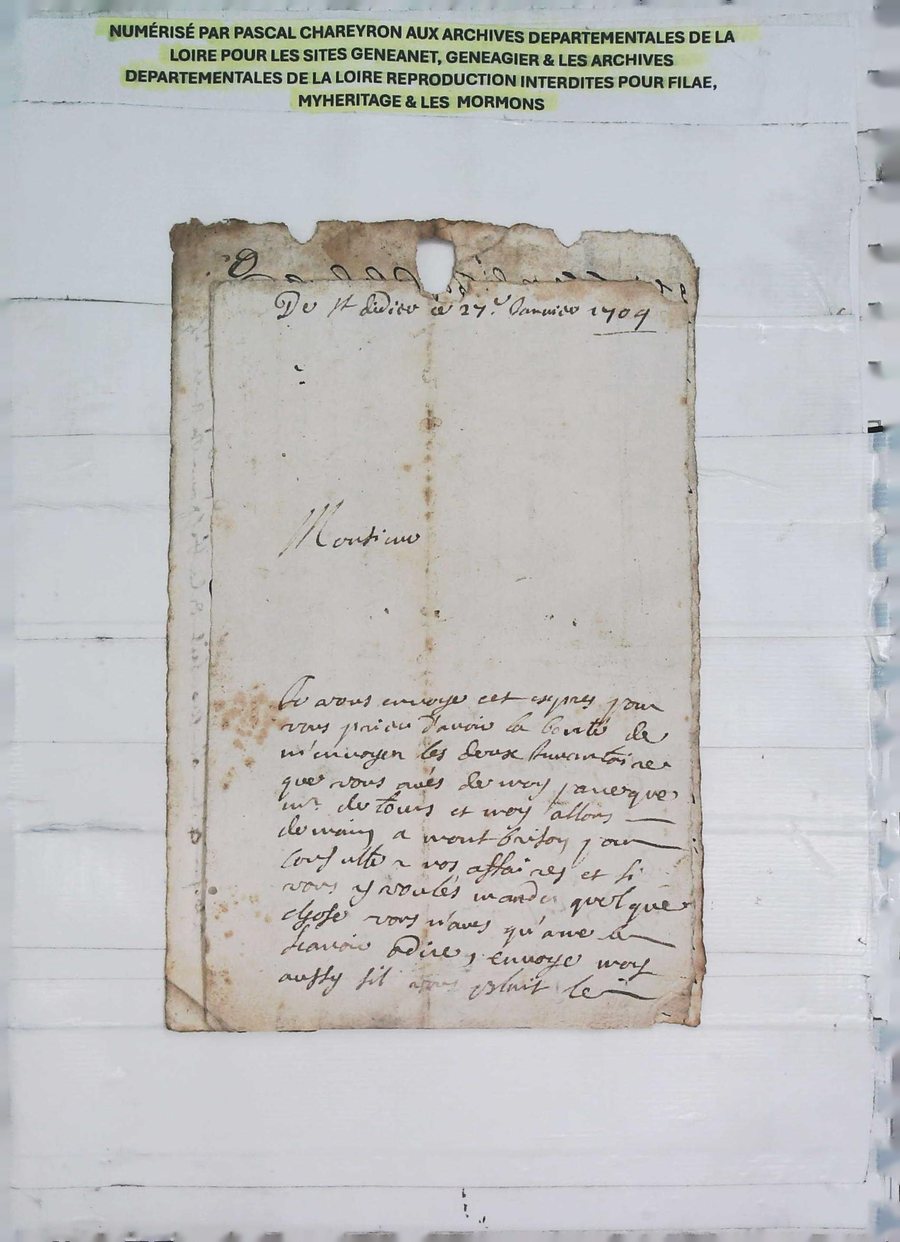 NUMÉRISÉ PAR PASCAL CHAREYRON AUX ARCHIVES DEPARTEMENTALES DE LA
LOIRE POUR LES SITES GENEANET, GENEAGIER & LES ARCHIVES
DEPARTEMENTALES DE LA LOIRE REPRODUCTION INTERDITES POUR FILAE,
MYHERITAGE & LES MORMONS
De St didier ce 27e Janvier 1709
Monsieur
Je vous envoye cet expres pour
vous prier d'avoir la bonté de
m'envoyer les deux Inventaire
que vous avés de moy parceque
mr. de et moy allons
demain a montbrison pour
consulter nos affaires et si
vous y voulés mander quelque
chose vous n'aves qu'a me le
faire adire, envoye moy
aussy sil vous plait le